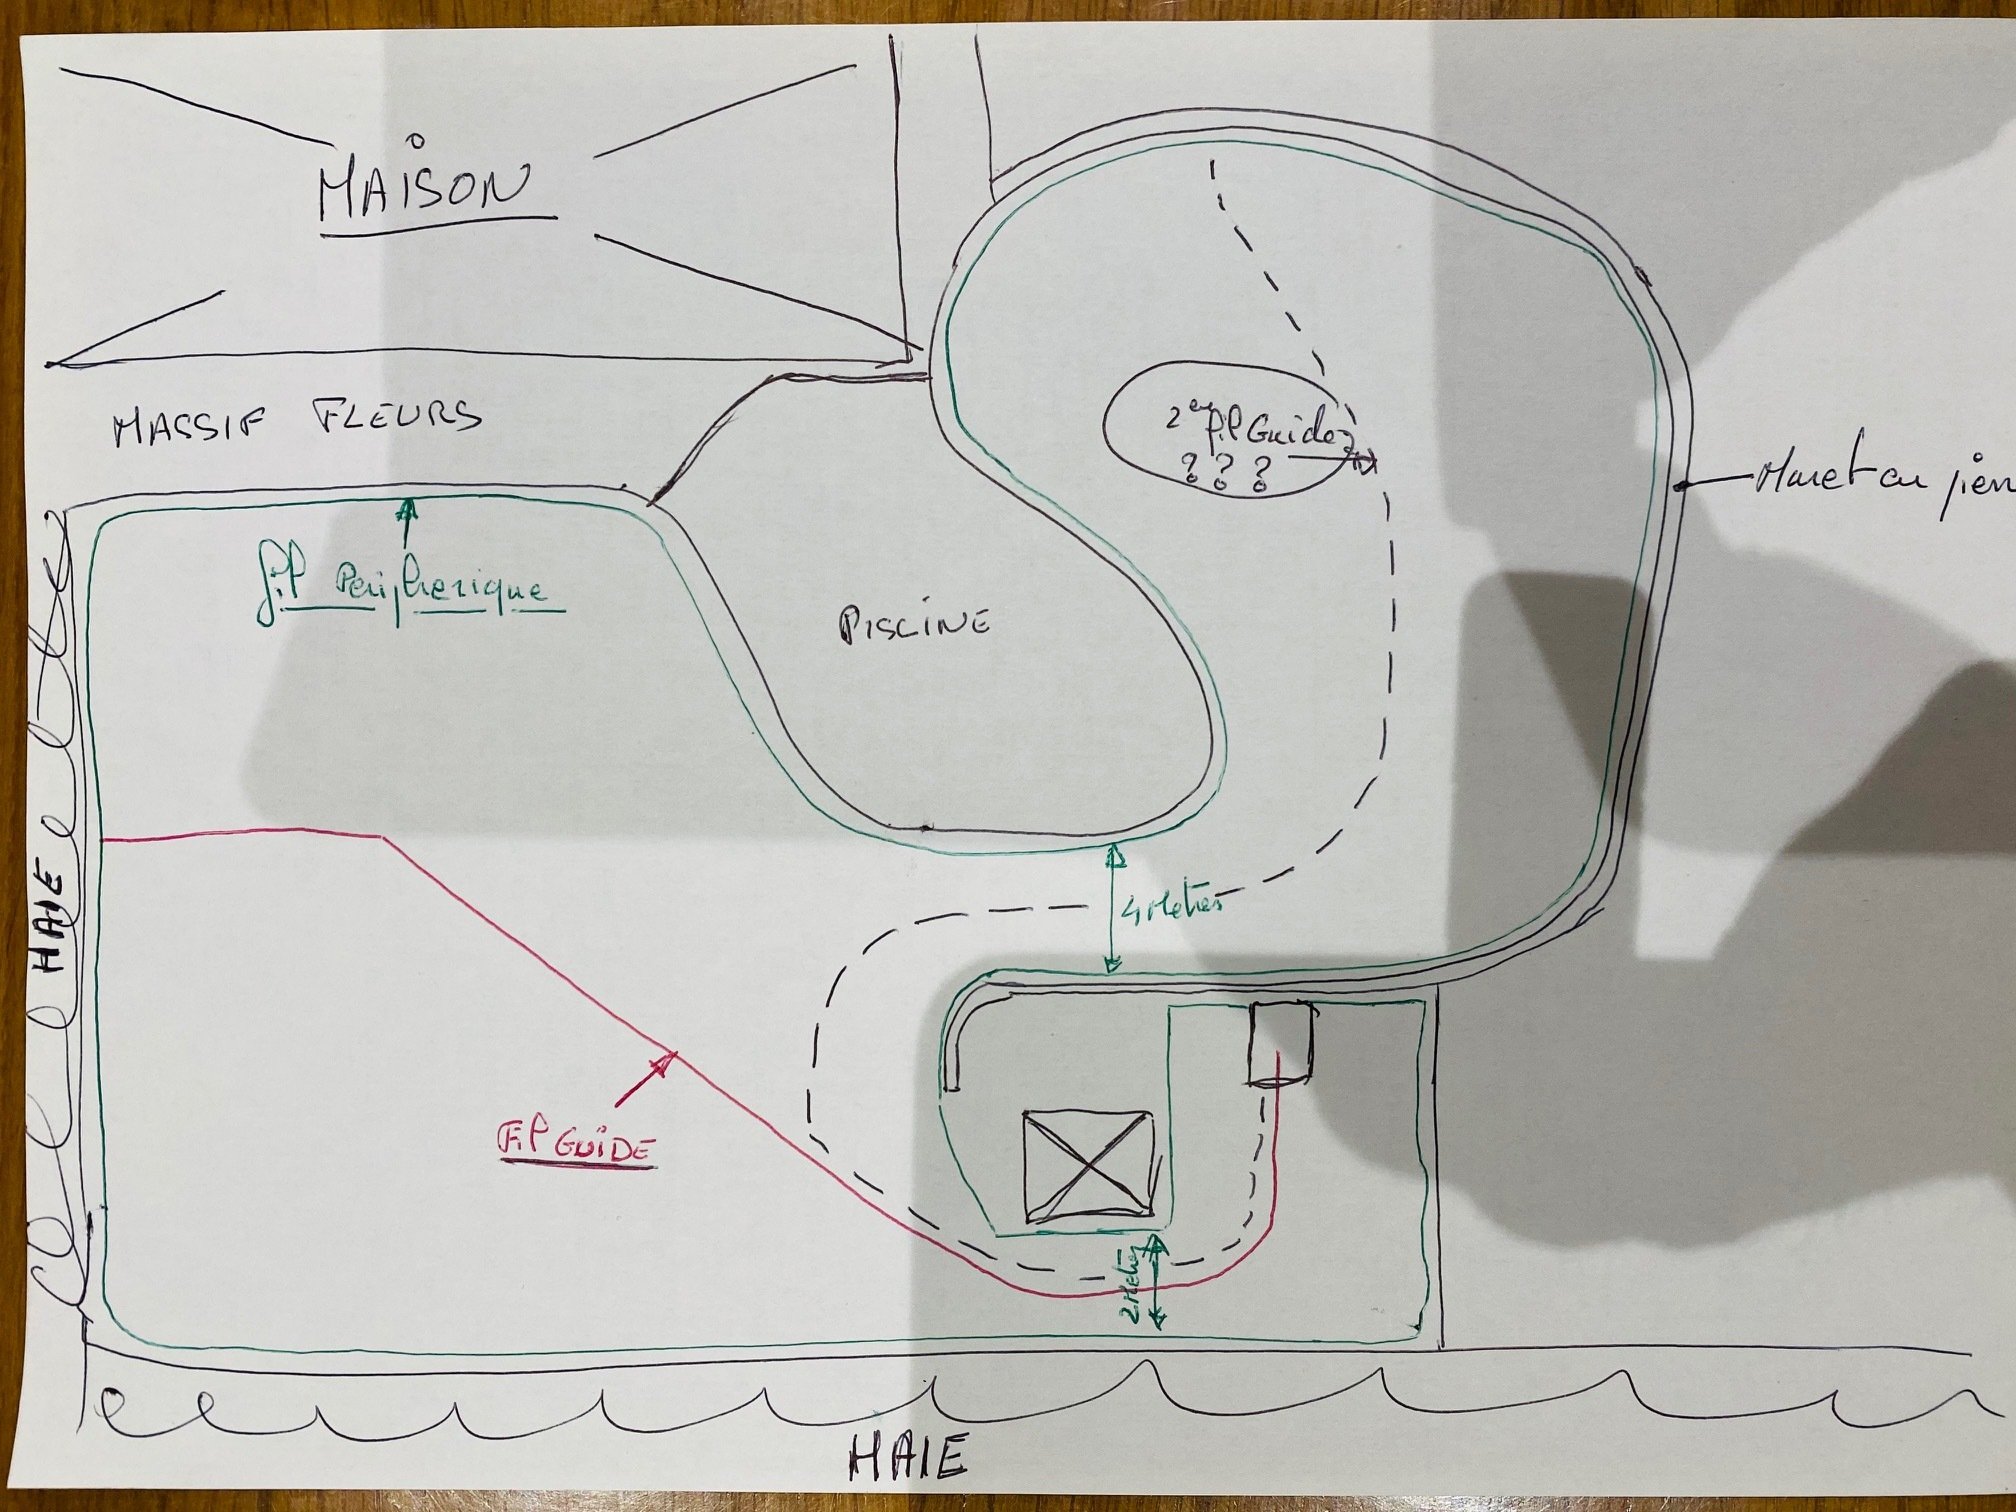 MAISON
MASSIF FLEURS
fil Peripherique
2em fil Guide
? ? ?
Muret en pierr
PISCINE
4 Metres
HAIE
Fil GUIDE
2 Metres
HAIE